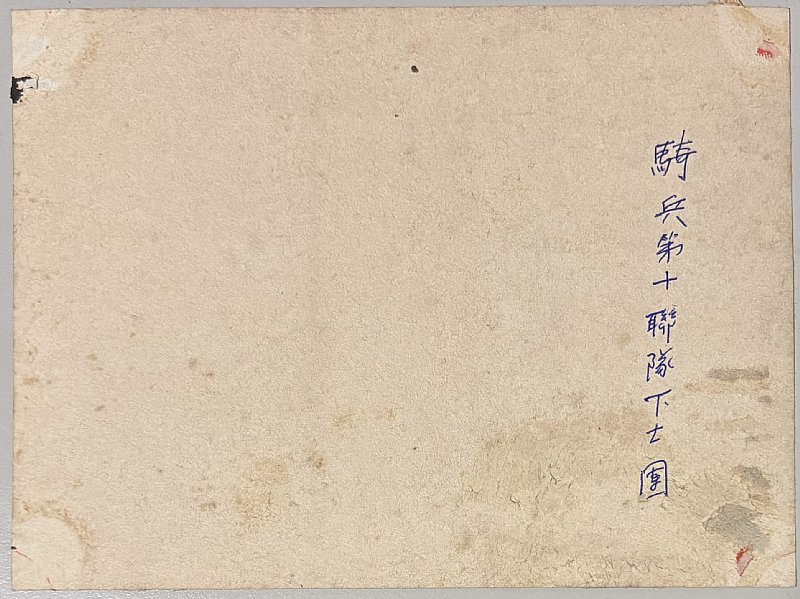 騎兵第十聯隊下士團